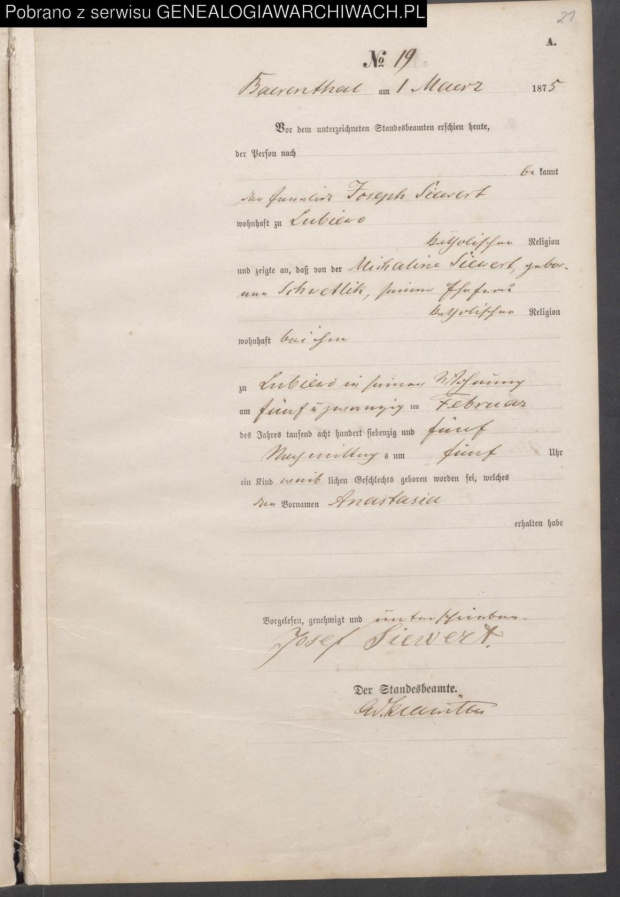 Pobrano z serwisu GENEALOGIAWARCHIWACH.PL
21
A.
No 19
Baerenthal am 1 Maerz 1875
Vor dem unterzeichneten Standesbeamten erschien heute,
der Person nach
be kannt
der Joseph Siewert
wohnhaft zu Lubiewo
katholischer Religion
und zeigte an, daß von der Michaline Siewert, gebor-
nen Schvetlik, seiner Ehefrau
katholischer Religion
wohnhaft bei ihm
zu Lubiewo in seiner Wohnung
am fünf u zwanzig ten Februar
des Jahres tausend acht hundert siebenzig und fünf
Nachmittag s um fünf Uhr
ein Kind weib lichen Geschlechts geboren worden sei, welches
den Vornamen Anastasia
erhalten habe
Vorgelesen, genehmigt und unterschrieben.
Josef Siewert.
Der Standesbeamte.